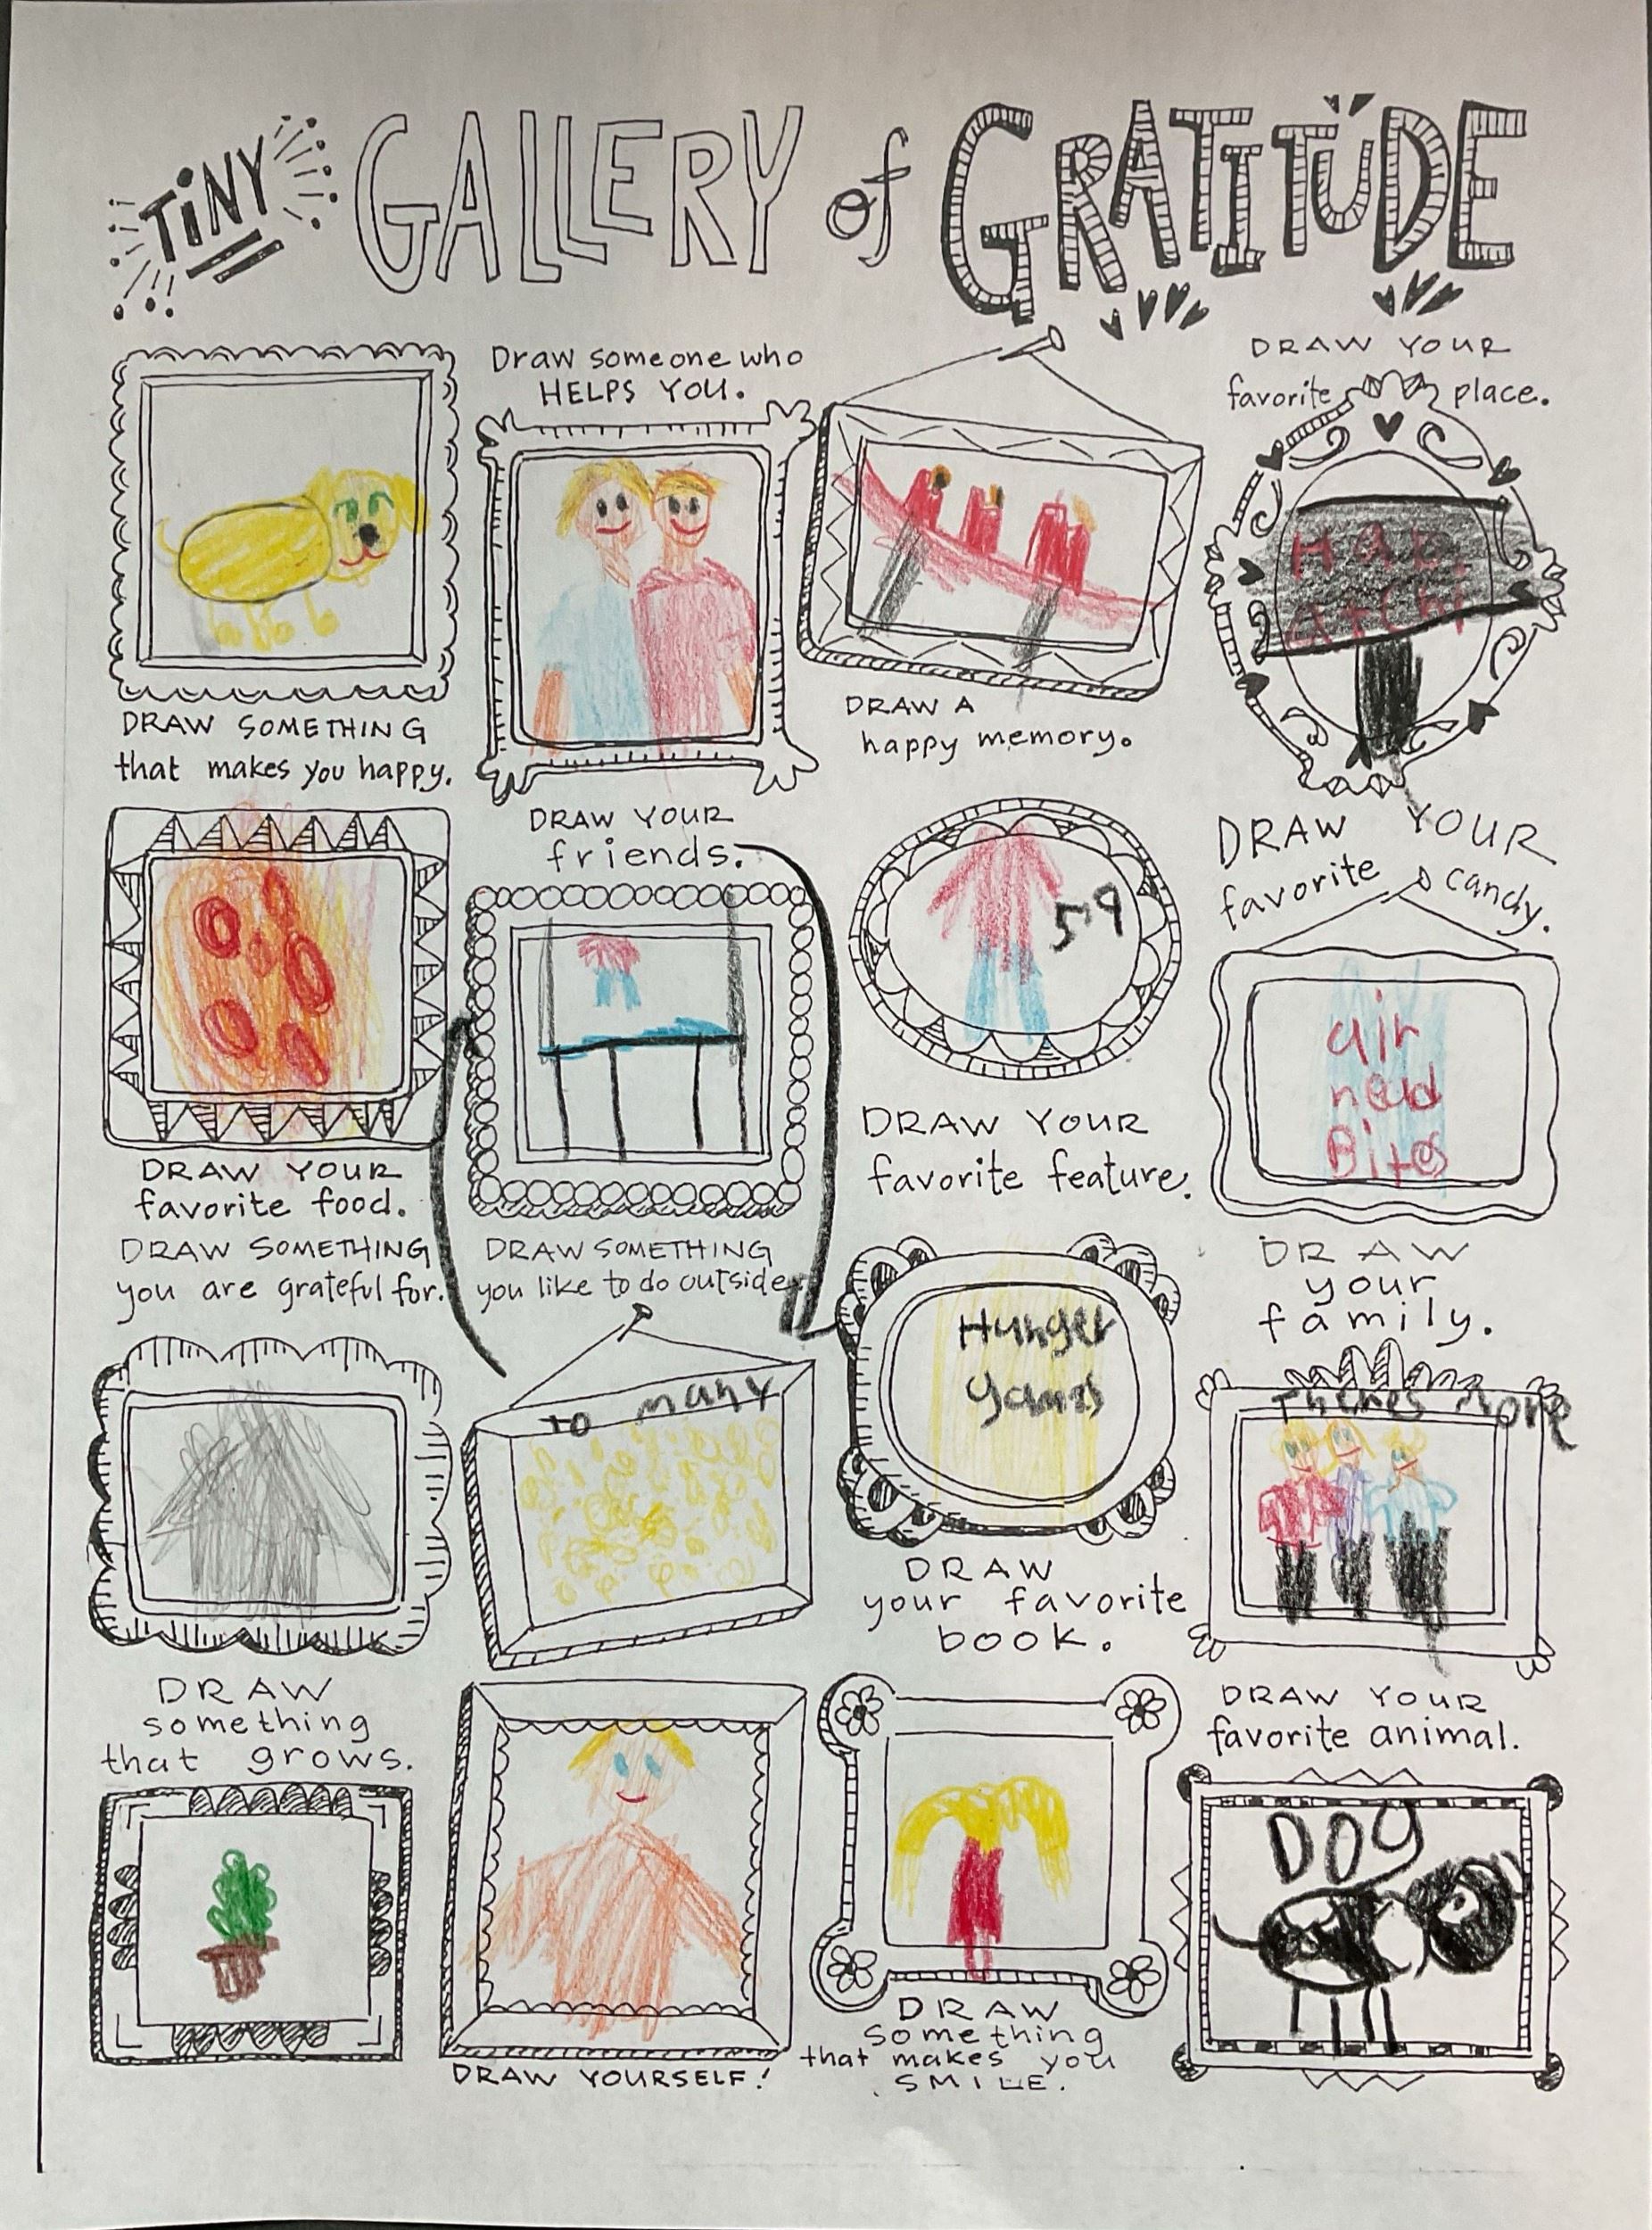 TiNY GALLERY of GRATITUDE
Draw someone who
HELPS YOU.
DRAW YOUR
favorite place.
DRAW SOMETHING
that makes you happy.
DRAW A
happy memory.
DRAW YOUR
friends.
DRAW YOUR
favorite candy.
5'9
air
head
Bites
DRAW YOUR
favorite food.
DRAW YOUR
favorite feature.
DRAW SOMETHING
you are grateful for.
DRAW SOMETHING
you like to do outside.
DRAW
your
family.
to many
Hunger
Games
Theres more
DRAW
your favorite
book.
DRAW
something
that grows.
DRAW YOUR
favorite animal.
DOg
DRAW YOURSELF!
DRAW
something
that makes you
SMILE.